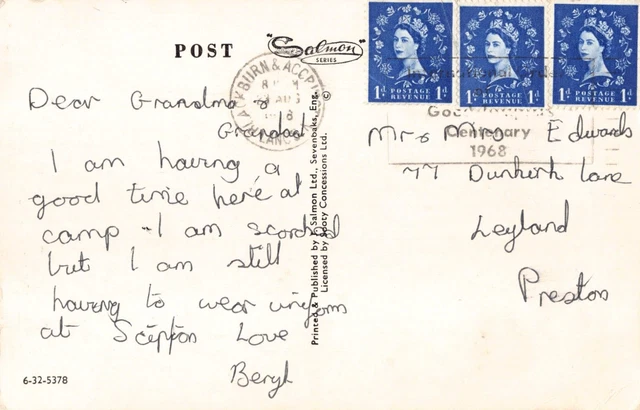 POST
"Salmon"
SERIES
BLACKBURN & ACCR
AUG
LANC
1d POSTAGE REVENUE 1d
1d POSTAGE REVENUE 1d
1d POSTAGE REVENUE 1d
Centenary
1968
Dear Grandma &
Grandad
I am having a
good time here at
camp - I am scorched
but I am still
having to wear uniform
at Scepton Love
Beryl
6-32-5378
Printed & Published by J. Salmon Ltd., Sevenoaks, Eng. ©
Licensed by Sooty Concessions Ltd.
Mr & Mrs Edwards
77 Dunkirk Lane
Leyland
Preston